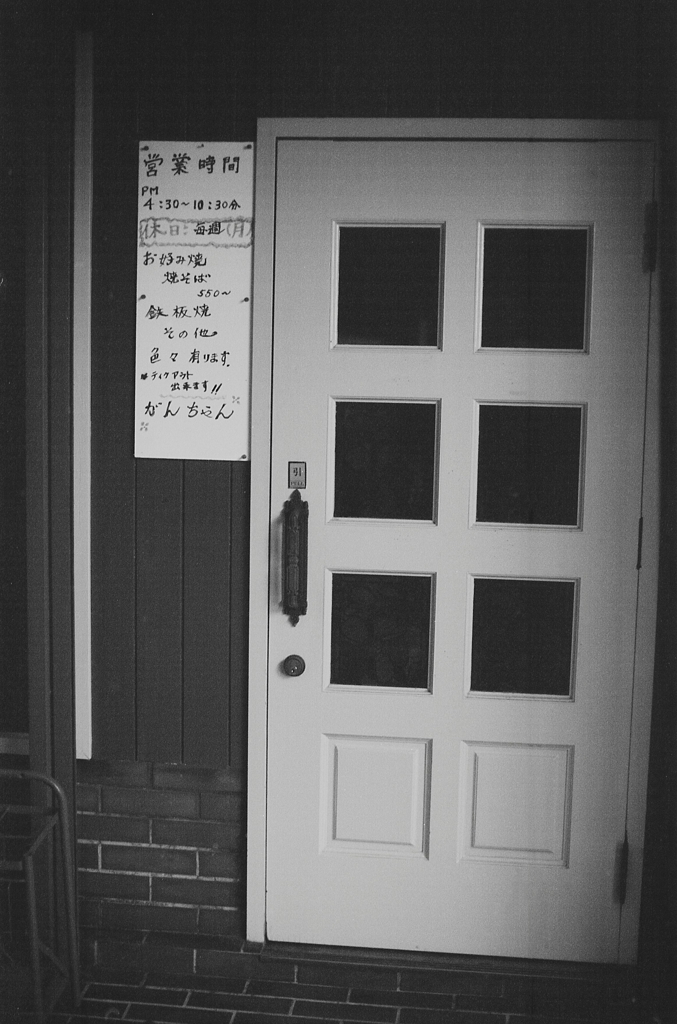 営業時間
PM
4:30〜10:30分
休日:毎週(月)
お好み焼
焼そば
550〜
鉄板焼
その他
色々有ります。
テイクアウト
出来ます!!
がんちゃん
引
PULL